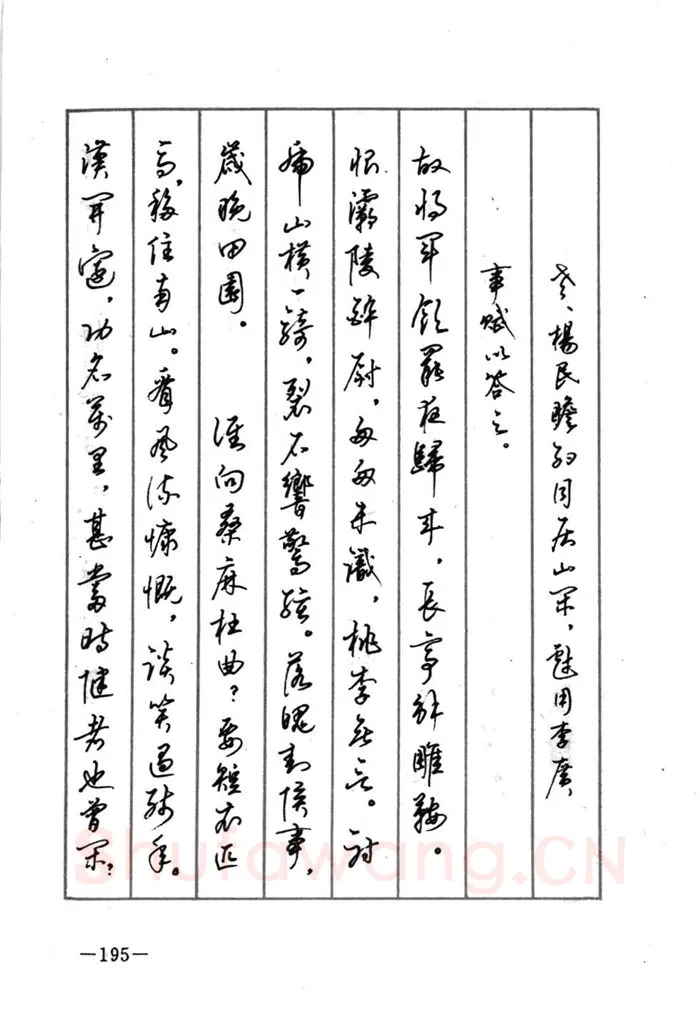 老、楊民瞻約同居山間，戲用李廣
事賦以答之。
故將軍飲罷夜歸來，長亭解雕鞍。
恨灞陵醉尉，匆匆未識，桃李無言。射
虎山橫一騎，裂石響驚弦。落魄封侯事，
歲晚田園。 誰向桑麻杜曲？要短衣匹
馬，移住南山。看風流慷慨，談笑過殘年。
漢開邊，功名萬里，甚當時健者也曾閑？
Shufawang.CN
—195—